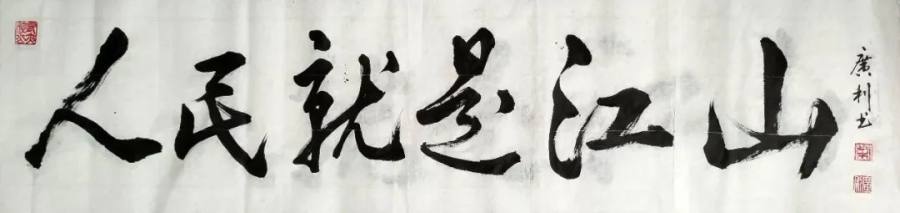 人民就是江山
廣利书